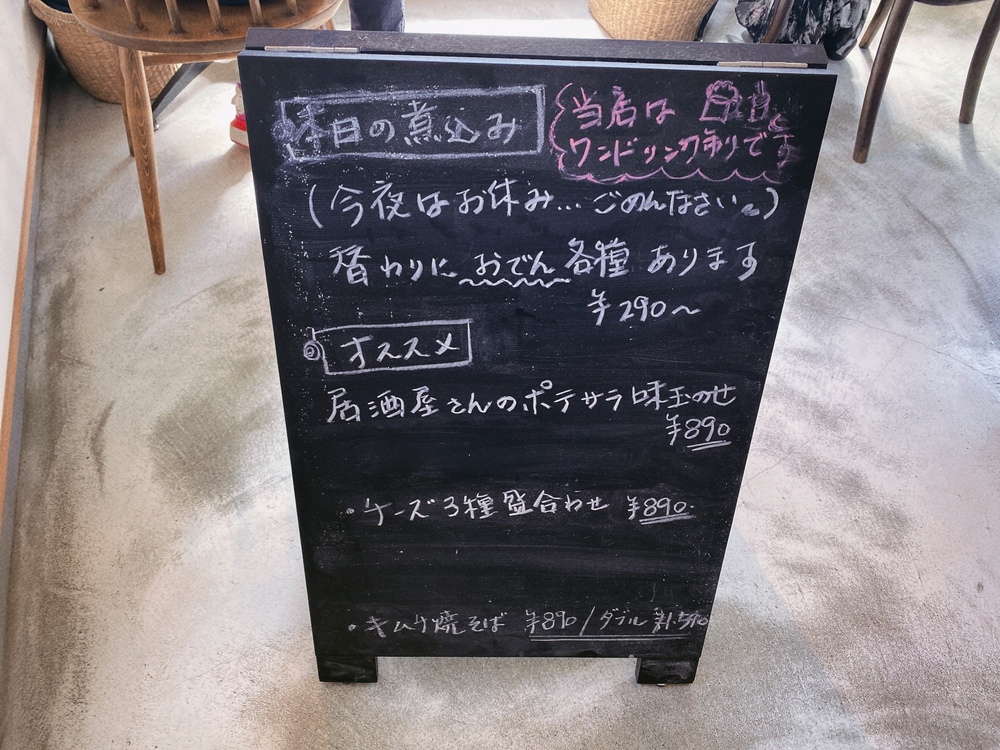 本日の煮込み
当店は
ワンドリンク制です
(今夜はお休み…ごめんなさい〜)
替わりにおでん各種あります
¥290〜
オススメ
居酒屋さんのポテサラ味玉のせ
¥890
・チーズ3種盛合わせ ¥890.
・キムチ焼そば ¥890/ダブル ¥1.590